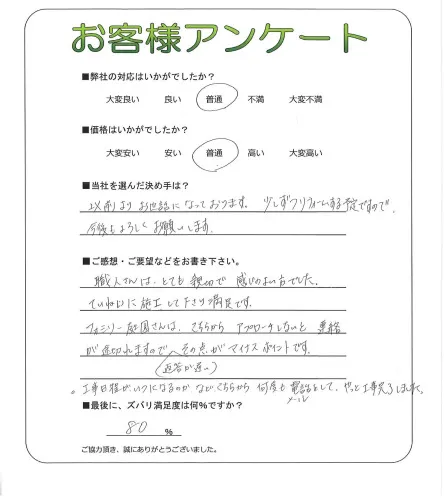 お客様アンケート
■弊社の対応はいかがでしたか?
大変良い 良い 普通 不満 大変不満
■価格はいかがでしたか?
大変安い 安い 普通 高い 大変高い
■当社を選んだ決め手は?
以前より お世話になっております。 少しずつリフォームする予定ですので、
今後もよろしく お願いします。
■ご感想・ご要望などをお書き下さい。
職人さんは、とても 親切で 感じのよい方でした。
ていねいに 施工して下さり 満足です。
ファミリー庭園さんは、こちらから アプローチしないと 連絡
が途切れますので その点がマイナスポイントです。
(返答が遅い)
。工事日程がいつになるのか など、こちらから 何度も 電話をして、やっと工事完了しました。
メール
■最後に、ズバリ満足度は何%ですか?
80 %
ご協力頂き、誠にありがとうございました。